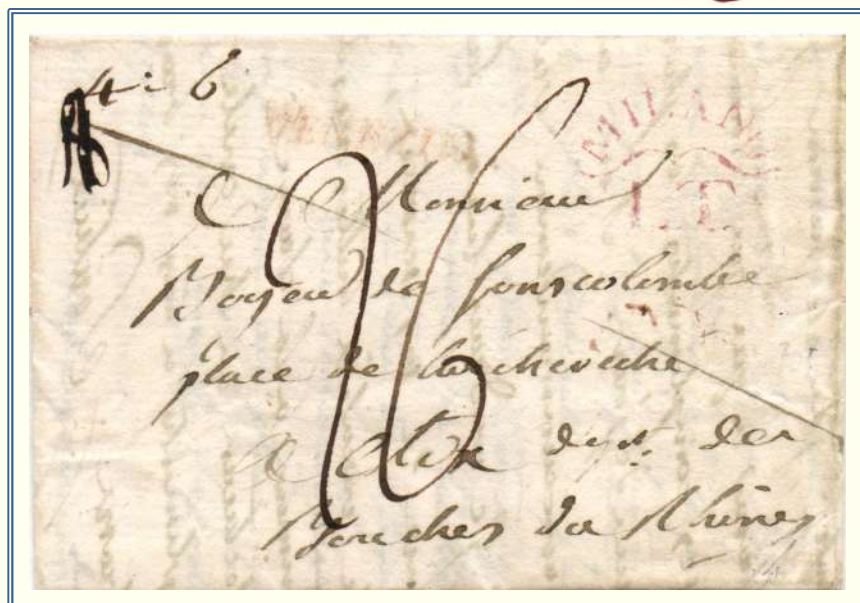 4: 6
MILANO
L.T.
26
A Monsieur
Boyer de fonscolombe
place de larcheveche
a Aix dept. des
Bouches du Rhône